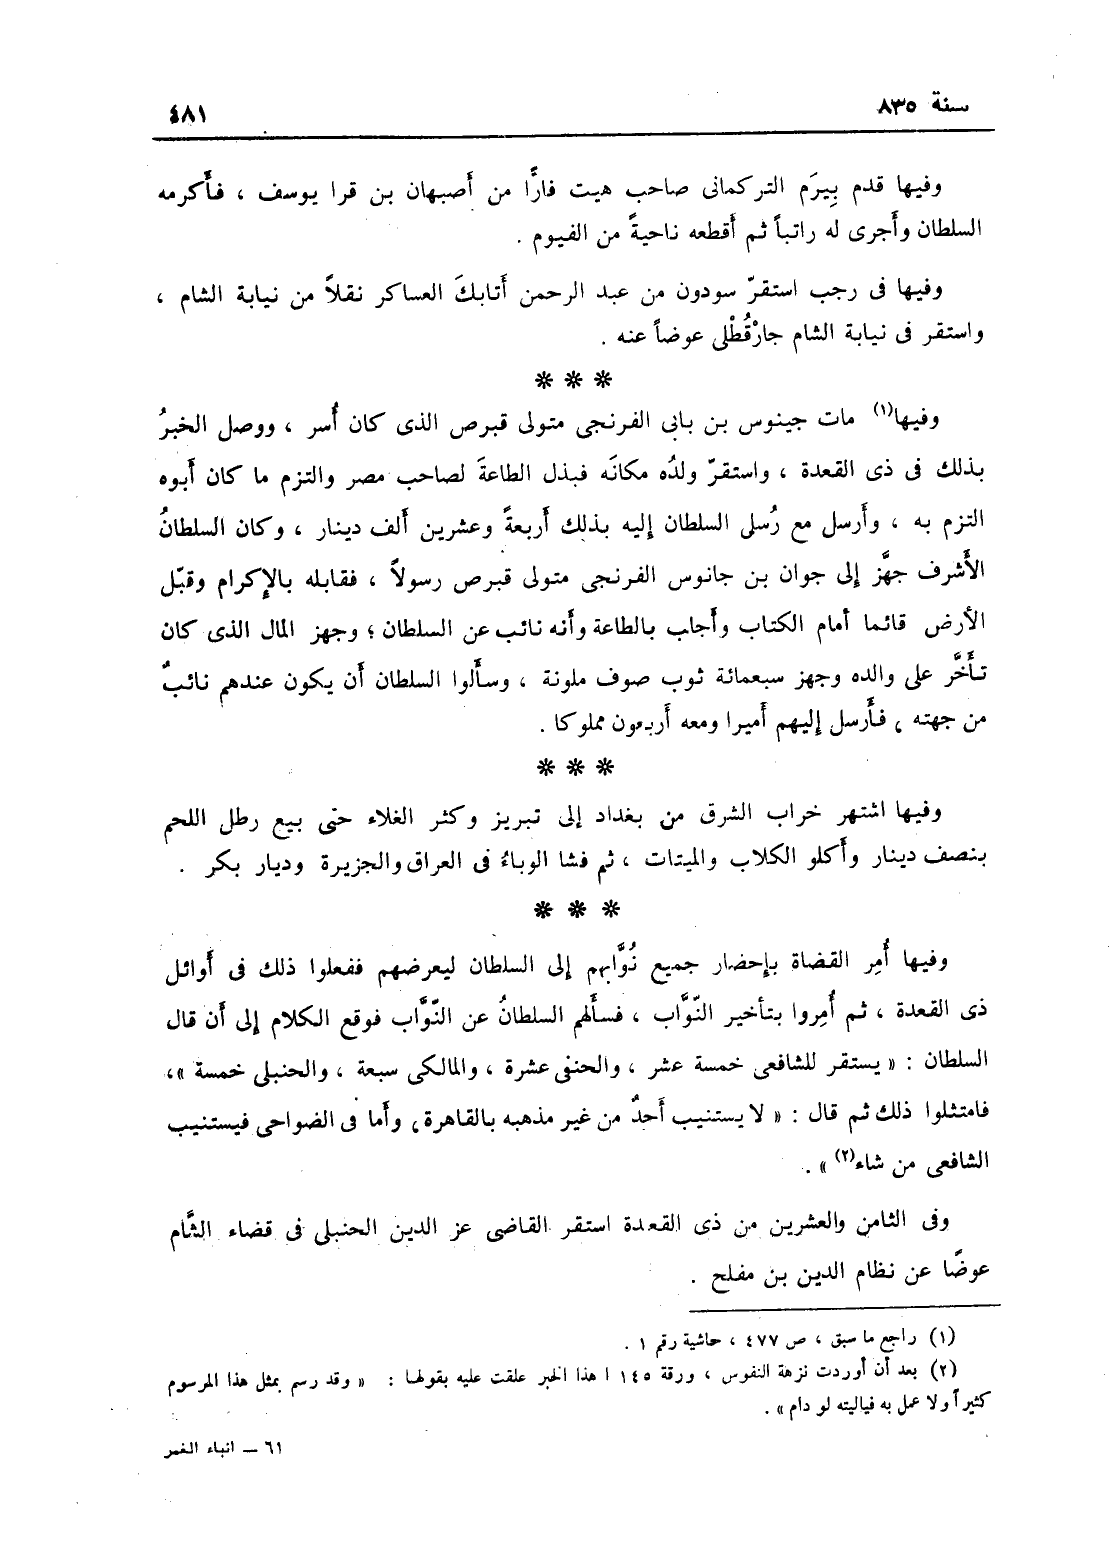 سنة ٨٣٥
٤٨١
وفيها قدم بِيرَم التركمانى صاحب هيت فارًّا من أَصبهان بن قرا يوسف ، فأَكرمه
السلطان وأَجرى له راتباً ثم أَقطعه ناحيةً من الفيوم .
وفيها فى رجب استقرّ سودون من عبد الرحمن أَتابكَ العساكر نقلاً من نيابة الشام ،
واستقر فى نيابة الشام جارْقُطْلى عوضاً عنه .
* * *
وفيها(١) مات جينوس بن بانى الفرنجى متولى قبرص الذى كان أُسر ، ووصل الخبرُ
بذلك فى ذى القعدة ، واستقرّ ولدُه مكانَه فبذل الطاعةَ لصاحب مصر والتزم ما كان أَبوه
التزم به ، وأَرسل مع رُسلى السلطان إليه بذلك أَربعةً وعشرين أَلف دينار ، وكان السلطانُ
الأَشرف جهَّز إلى جوان بن جانوس الفرنجى متولى قبرص رسولاً ، فقابله بالإكرام وقبّل
الأرض قائما أمام الكتاب وأَجاب بالطاعة وأَنه نائب عن السلطان ؛ وجهز المال الذى كان
تأَخَّر على والده وجهز سبعمائة ثوب صوف ملونة ، وسأَلوا السلطان أَن يكون عندهم نائبٌ
من جهته ، فأَرسل إليهم أَميرا ومعه أَربعون مملوكا .
* * *
وفيها اشتهر خراب الشرق من بغداد إلى تبريز وكثر الغلاء حتى بيع رطل اللحم
بنصف دينار وأَكلو الكلاب والميتات ، ثم فشا الوباءُ فى العراق والجزيرة وديار بكر .
* * *
وفيها أُمِر القضاة بإحضار جميع نُوَّابهم إلى السلطان ليعرضهم ففعلوا ذلك فى أَوائل
ذى القعدة ، ثم أُمِروا بتأخير النّوَّاب ، فسأَلهم السلطانُ عن النّوَّاب فوقع الكلام إلى أَن قال
السلطان : « يستقر للشافعى خمسة عشر ، والحنفى عشرة ، والمالكى سبعة ، والحنبلى خمسة »،
فامتثلوا ذلك ثم قال : « لا يستنيب أَحدٌ من غير مذهبه بالقاهرة ، وأَما فى الضواحى فيستنيب
الشافعى من شاء(٢) » .
وفى الثامن والعشرين من ذى القعدة استقر القاضى عز الدين الحنبلى فى قضاء الشَّام
عوضًا عن نظام الدين بن مفلح .
(١) راجع ما سبق ، ص ٤٧٧ ، حاشية رقم ١ .
(٢) بعد أن أوردت نزهة النفوس ، ورقة ١٤٥ ا هذا الخبر علقت عليه بقولها : « وقد رسم بمثل هذا المرسوم
كثيراً ولا عمل به فياليته لو دام » .
٦١ – انباء الغمر